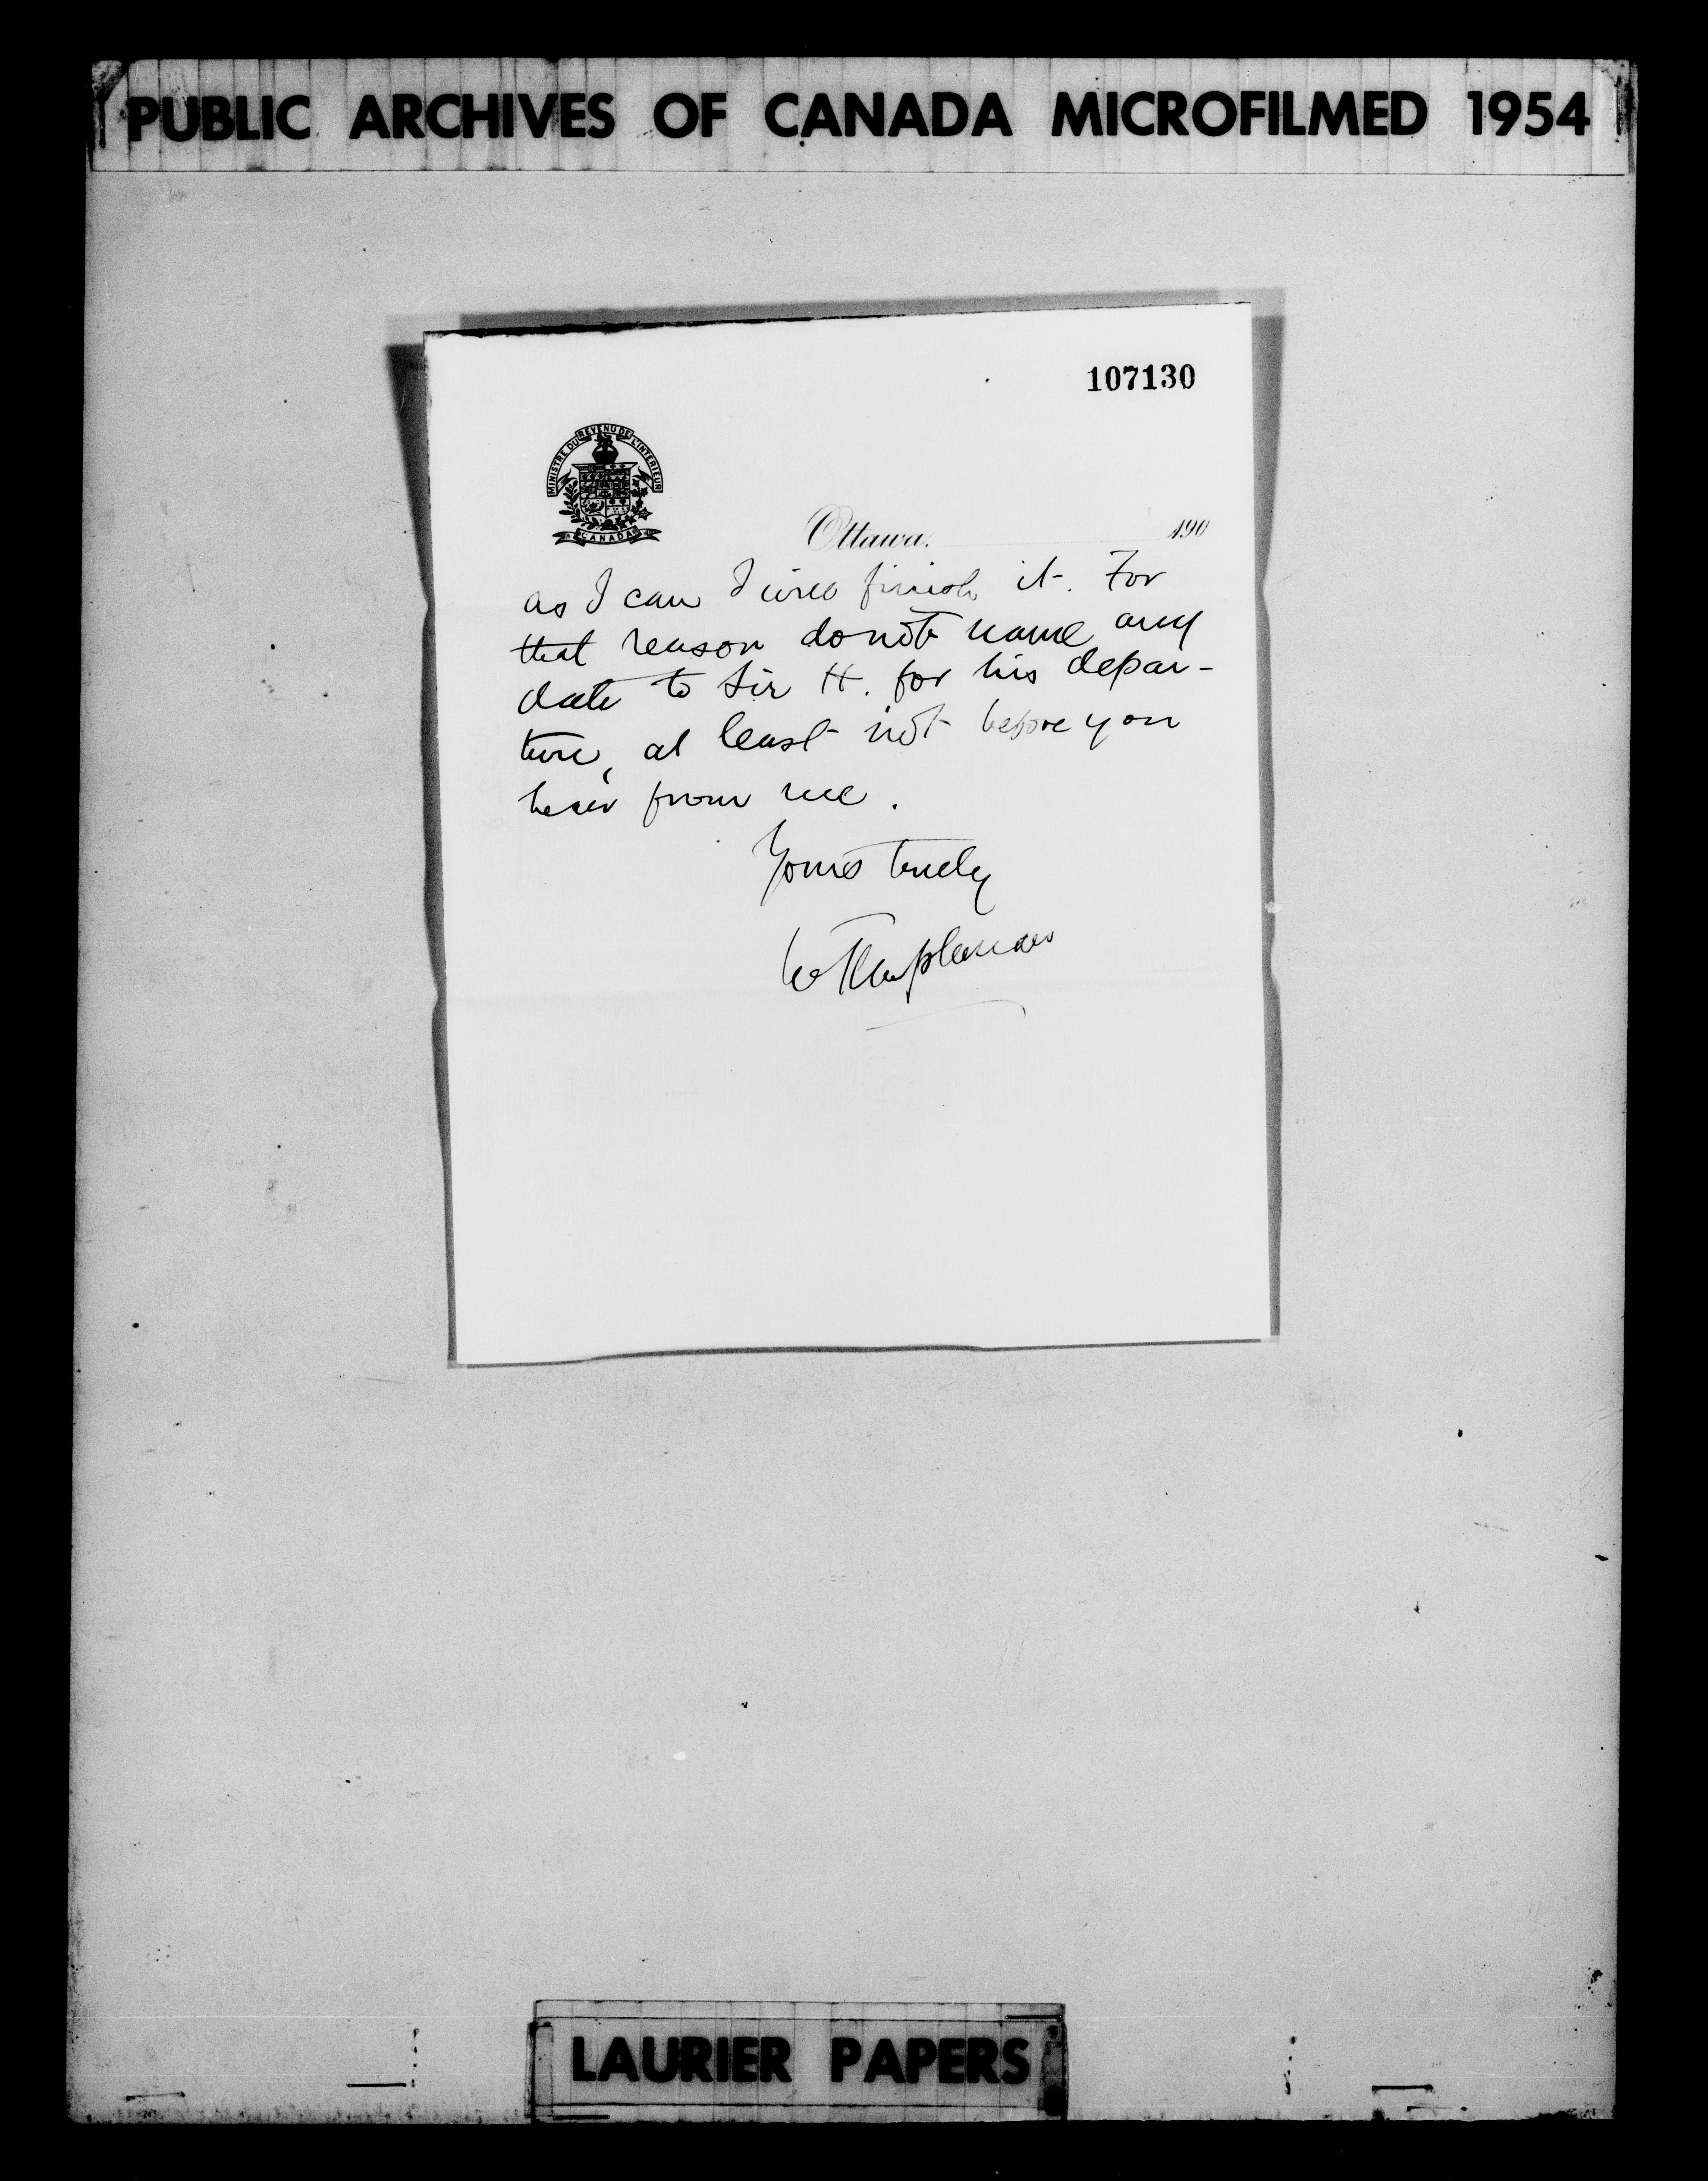 PUBLIC ARCHIVES OF CANADA MICROFILMED 1954
107130
MINISTRE DU REVENU DE L'INTERIEUR
CANADA
Ottawa, 190
as I can I will finish it. For
that reason do not name any
date to Sir H. for his depar-
ture, at least not before you
hear from me.
Yours truly
W Templeman
LAURIER PAPERS